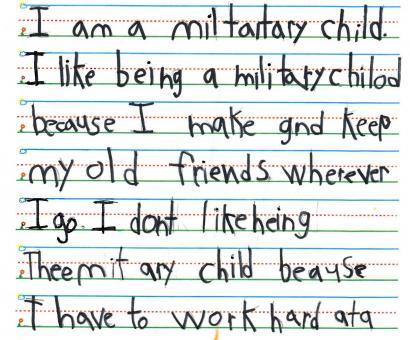 I am a miltartary child.
I like being a military chilod
because I make and keep
my old friends wherever
I go. I dont like heing
Theemit ary child beause
I have to work hard ata